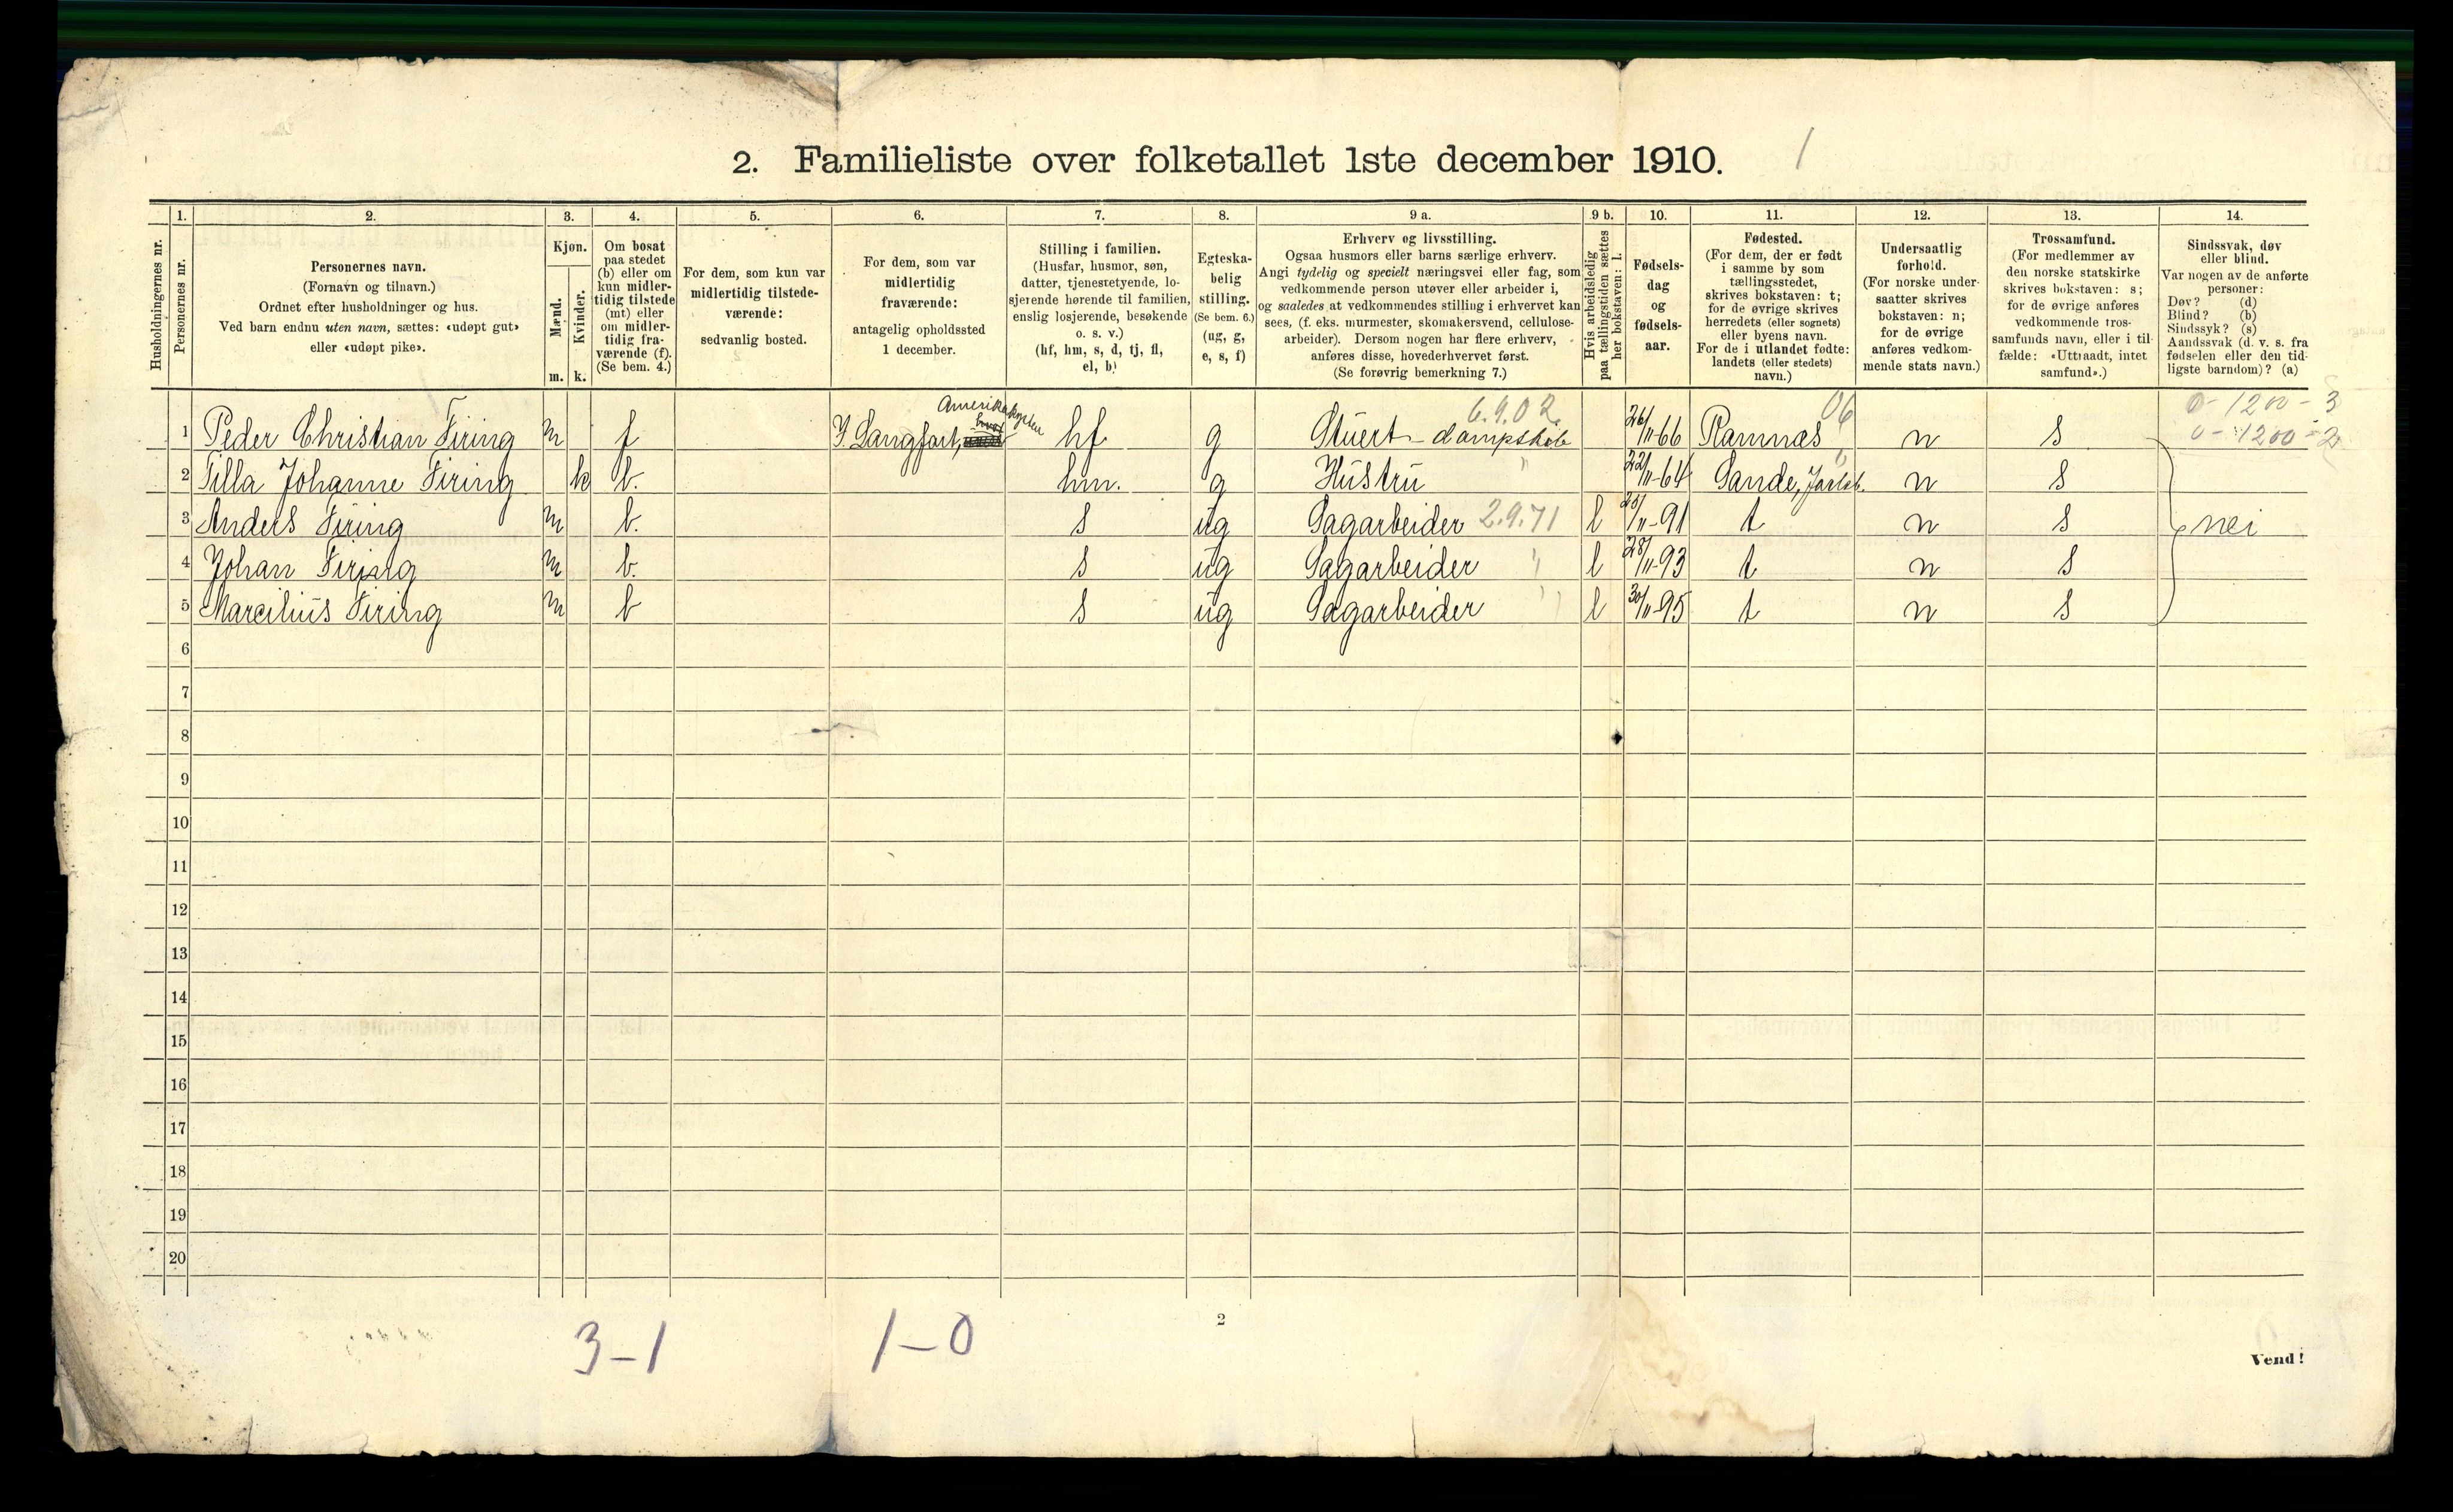 2. Familieliste over folketallet 1ste december 1910.
1
Husholdningernes nr.
1.
Personernes nr.
2.
Personernes navn.
(Fornavn og tilnavn.)
Ordnet efter husholdninger og hus.
Ved barn endnu uten navn, sættes: «udøpt gut»
eller «udøpt pike».
3.
Kjøn.
Mænd.
Kvinder.
m. k.
4.
Om bosat
paa stedet
(b) eller om
kun midler-
tidig tilstede
(mt) eller
om midler-
tidig fra-
værende (f).
(Se bem. 4.)
5.
For dem, som kun var
midlertidig tilstede-
værende:
sedvanlig bosted.
6.
For dem, som var
midlertidig
fraværende:
antagelig opholdssted
1 december.
7.
Stilling i familien.
(Husfar, husmor, søn,
datter, tjenestetyende, lo-
sjerende hørende til familien,
enslig losjerende, besøkende
o. s. v.)
(hf, hm, s, d, tj, fl,
el, b)
8.
Egteska-
belig
stilling.
(Se bem. 6.)
(ug, g,
e, s, f)
9 a.
Erhverv og livsstilling.
Ogsaa husmors eller barns særlige erhverv.
Angi tydelig og specielt næringsvei eller fag, som
vedkommende person utøver eller arbeider i,
og saaledes at vedkommendes stilling i erhvervet kan
sees, (f. eks. murmester, skomakersvend, cellulose-
arbeider). Dersom nogen har flere erhverv,
anføres disse, hovederhvervet først.
(Se forøvrig bemerkning 7.)
9 b.
Hvis arbeidsledig
paa tællingstiden sættes
her bokstaven: l.
10.
Fødsels-
dag
og
fødsels-
aar.
11.
Fødested.
(For dem, der er født
i samme by som
tællingsstedet,
skrives bokstaven: t;
for de øvrige skrives
herredets (eller sognets)
eller byens navn.
For de i utlandet fødte:
landets (eller stedets)
navn.)
12.
Undersaatlig
forhold.
(For norske under-
saatter skrives
bokstaven: n;
for de øvrige
anføres vedkom-
mende stats navn.)
13.
Trossamfund.
(For medlemmer av
den norske statskirke
skrives bokstaven: s;
for de øvrige anføres
vedkommende tros-
samfunds navn, eller i til-
fælde: «Uttraadt, intet
samfund».)
14.
Sindssvak, døv
eller blind.
Var nogen av de anførte
personer:
Døv? (d)
Blind? (b)
Sindssyk? (s)
Aandssvak (d. v. s. fra
fødselen eller den tid-
ligste barndom)? (a)
Amerikakysten
6.9.02. 06 0-1200-3
1 Peder Christian Firing m f I Langfart, hf g Stuert - dampskib 26/11-66 Ramnæs n s 0-1200-2
2 Tilla Johanne Firing k b. hm. g Hustru " 22/11-64 Sande, Jarlsb. n s
3 Anders Firing m b. s ug Sagarbeider 2.9.71 l /11-91 t n s nei
4 Johan Firing m b. s ug Sagarbeider " l 28/11-93 t n s
5 Marcilius Firing m b s ug Sagarbeider " l 30/11-95 t n s
6
7
8
9
10
11
12
13
14
15
16
17
18
19
20
3-1 1-0
2
Vend!